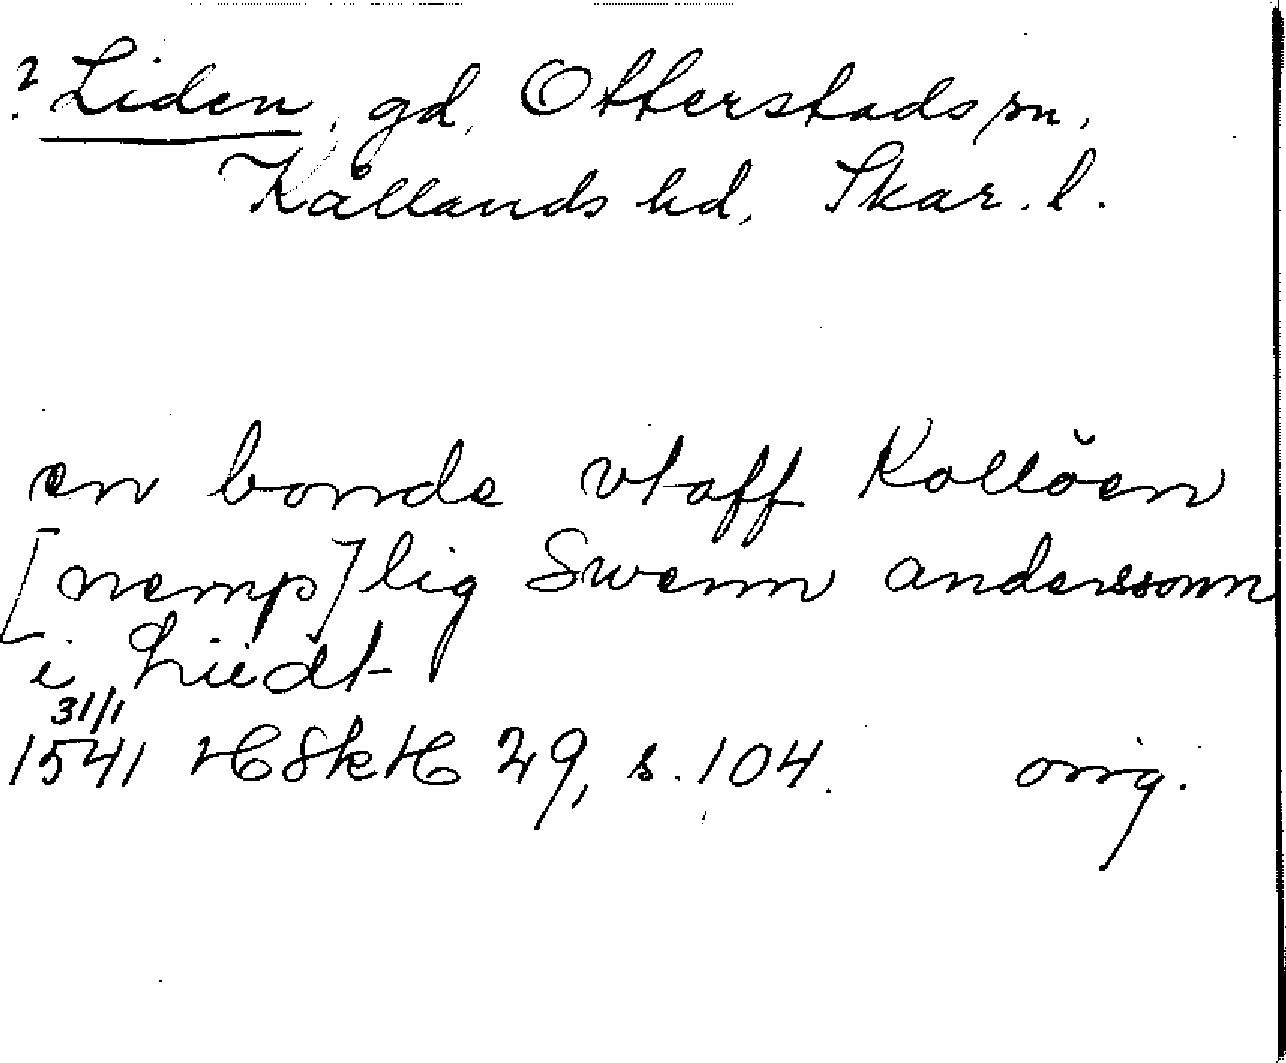 ? Liden, gd, Otterstads sn,
Kållands hd, Skar. l.
en bonde vtaff Kollöen
[nemp]lig Swenn anderssonn
i Liidt
31/1
1541 HSkH 29, s. 104. orig.